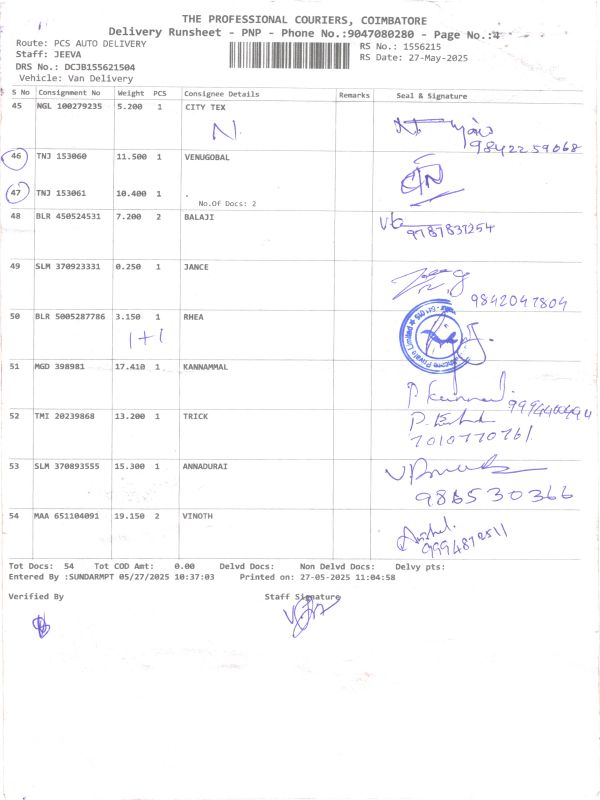 THE PROFESSIONAL COURIERS, COIMBATORE
Delivery Runsheet - PNP - Phone No.:9047080280 - Page No.:4
Route: PCS AUTO DELIVERY
RS No.: 1556215
Staff: JEEVA
RS Date: 27-May-2025
DRS No.: DCJB155621504
Vehicle: Van Delivery
S No Consignment No Weight PCS Consignee Details Remarks Seal & Signature
45 NGL 100279235 5.200 1 CITY TEX
N.
9842259068
46 TNJ 153060 11.500 1 VENUGOBAL
47 TNJ 153061 10.400 1 .
No.Of Docs: 2
48 BLR 450524531 7.200 2 BALAJI
9787837254
49 SLM 370923331 0.250 1 JANCE
9842047804
50 BLR 5005287786 3.150 1 RHEA
1+1
Private Limited
51 MGD 398981 17.410 1 KANNAMMAL
52 TMI 20239868 13.200 1 TRICK
7010770761
53 SLM 370893555 15.300 1 ANNADURAI
986530366
54 MAA 651104091 19.150 2 VINOTH
9994872511
Tot Docs: 54 Tot COD Amt: 0.00 Delvd Docs: Non Delvd Docs: Delvy pts:
Entered By :SUNDARMPT 05/27/2025 10:37:03 Printed on: 27-05-2025 11:04:58
Verified By Staff Signature